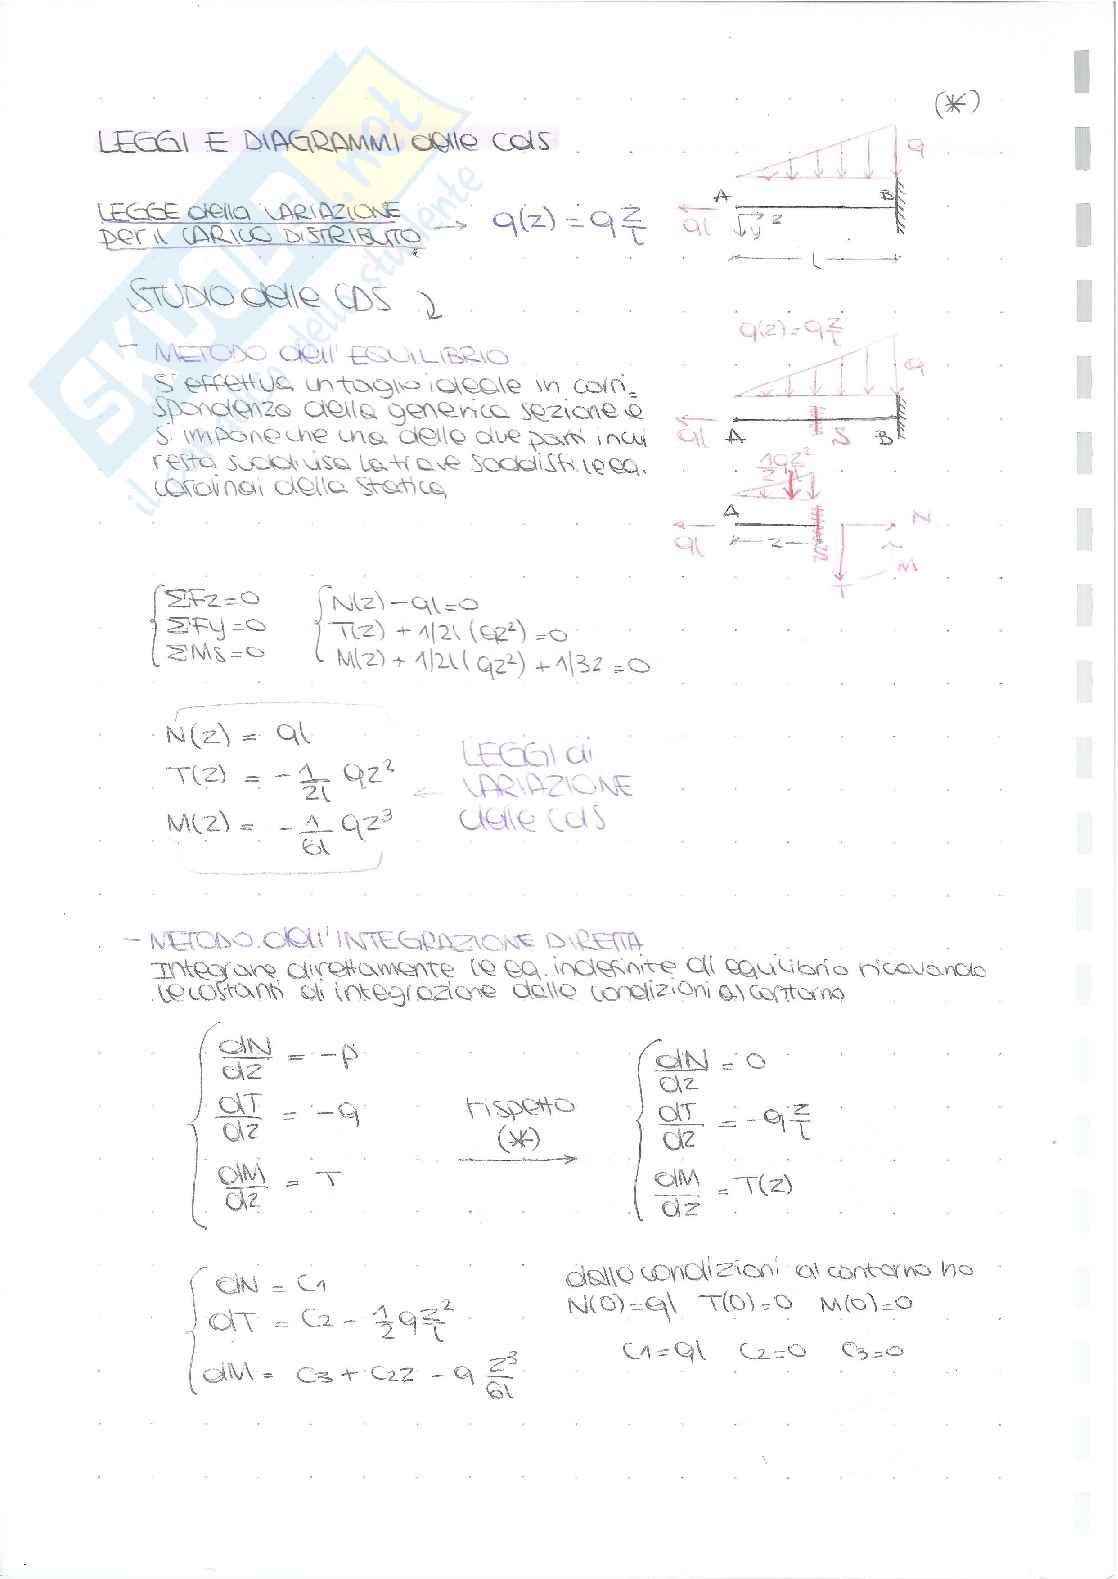 (*)
LEGGI E DIAGRAMMI delle CdS
LEGGE della VARIAZIONE
per il CARICO DISTRIBUTO → q(z) = q z/l
q
A B
ql z
y
l
STUDIO delle CDS
q(z) = q z/l
q
ql A S B
1/2 qz²/l
A
ql z S N
M
T
- METODO dell'EQUILIBRIO
S'effettua un taglio ideale in corri-
spondenza della generica sezione e
s'impone che una delle due parti in cui
resta suddivisa la trave soddisfi le eq.
cardinai della statica
ΣFz=0 N(z) - ql=0
ΣFy=0 T(z) + 1/2l (qz²)=0
ΣMs=0 M(z) + 1/2l (qz²) + 1/3z = 0
N(z) = ql
T(z) = - 1/2l qz²
M(z) = - 1/6l qz³
← LEGGI di
VARIAZIONE
delle CdS
- METODO dell'INTEGRAZIONE DIRETTA
Integrare direttamente le eq. indefinite di equilibrio ricavando
le costanti di integrazione dalle condizioni al contorno
dN/dz = -p
dT/dz = -q
dM/dz = T
rispetto
(*)
→
dN/dz = 0
dT/dz = -q z/l
dM/dz = T(z)
dN = C1
dT = C2 - 1/2 q z²/l
dM = C3 + C2z - q z³/6l
dalle condizioni al contorno ho
N(0)=ql T(0)=0 M(0)=0
C1=ql C2=0 C3=0
SKUOLA.net
il dello studente